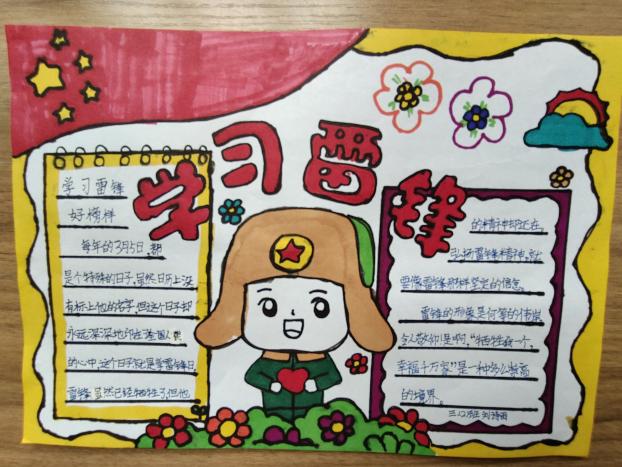 学习雷锋
学习雷锋
好榜样
每年的3月5日,都
是个特殊的日子,虽然日历上没
有标上他的名字,但这个日子却
永远深深地印在
的心中,这个日子就是学雷锋日
雷锋虽然已经牺牲了,但他
的精神却还在。
弘扬雷锋精神,就
要像雷锋那样坚定的信念。
雷锋的形象是何等的伟岸
令人敬仰!是啊,“牺牲我一个,
幸福千万家”是一种多么崇高
的境界。
三.12班